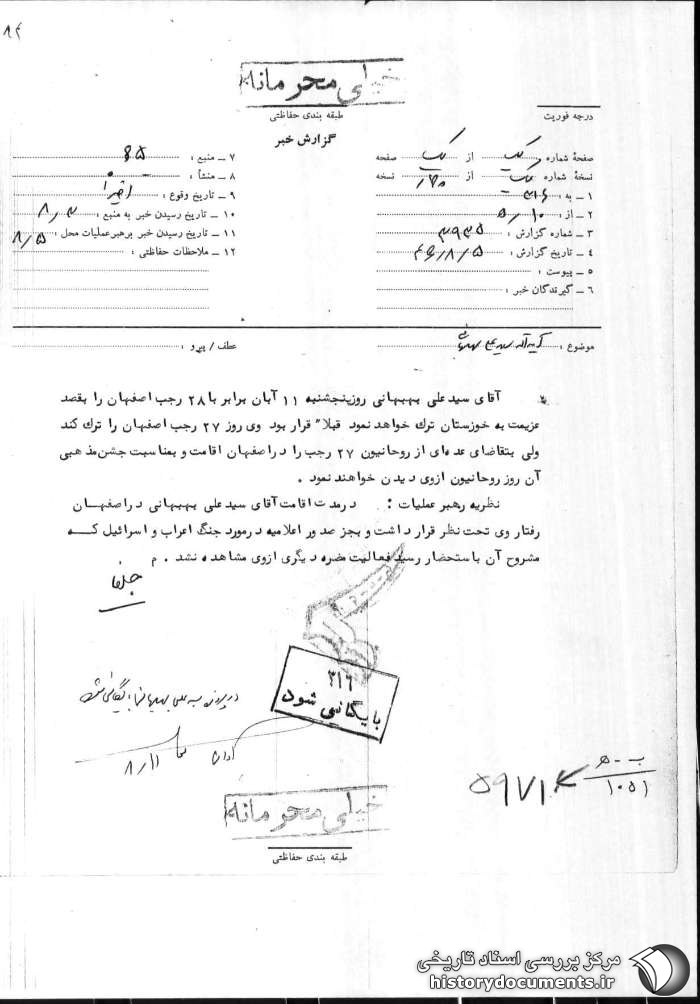 ۸۴
خیلی محرمانه
طبقه بندی حفاظتی
درجه فوریت
گزارش خبر
صفحهٔ شماره یک از یک صفحه
نسخهٔ شماره یک از نسخه
۱ ـ به : ۳۱۶
۲ ـ از : ۱۰ / ه
۳ ـ شماره گزارش :
۴ ـ تاریخ گزارش : ۴۶/۸/۵
۵ ـ پیوست :
۶ ـ گیرندگان خبر :
۷ ـ منبع :
۸ ـ منشأ :
۹ ـ تاریخ وقوع : اخیراً
۱۰ ـ تاریخ رسیدن خبر به منبع :
۱۱ ـ تاریخ رسیدن خبر برهبر عملیات محل : ۸/۵
۱۲ ـ ملاحظات حفاظتی :
موضوع :
عطف / پیرو :
آقای سید علی بهبهانی روز پنجشنبه ۱۱ آبان برابر با ۲۸ رجب اصفهان را بقصد
عزیمت به خوزستان ترک خواهد نمود قبلا" قرار بود وی روز ۲۷ رجب اصفهان را ترک کند
ولی بتقاضای عده‌ای از روحانیون ۲۷ رجب را در اصفهان اقامت و بمناسبت جشن مذهبی
آن روز روحانیون ازوی دیدن خواهند نمود .
نظریه رهبر عملیات : در مدت اقامت آقای سید علی بهبهانی در اصفهان
رفتار وی تحت نظر قرار داشت و بجز صدور اعلامیه در مورد جنگ اعراب و اسرائیل که
مشروح آن باستحضار رسید فعالیت مضره دیگری ازوی مشاهده نشد . م
۳۱۶
بایگانی شود
۸/۱۱
۵۹۷۱۴
ب - ۵۰۰
۱۰۵۱
خیلی محرمانه
طبقه بندی حفاظتی
مرکز بررسی اسناد تاریخی
historydocuments.ir